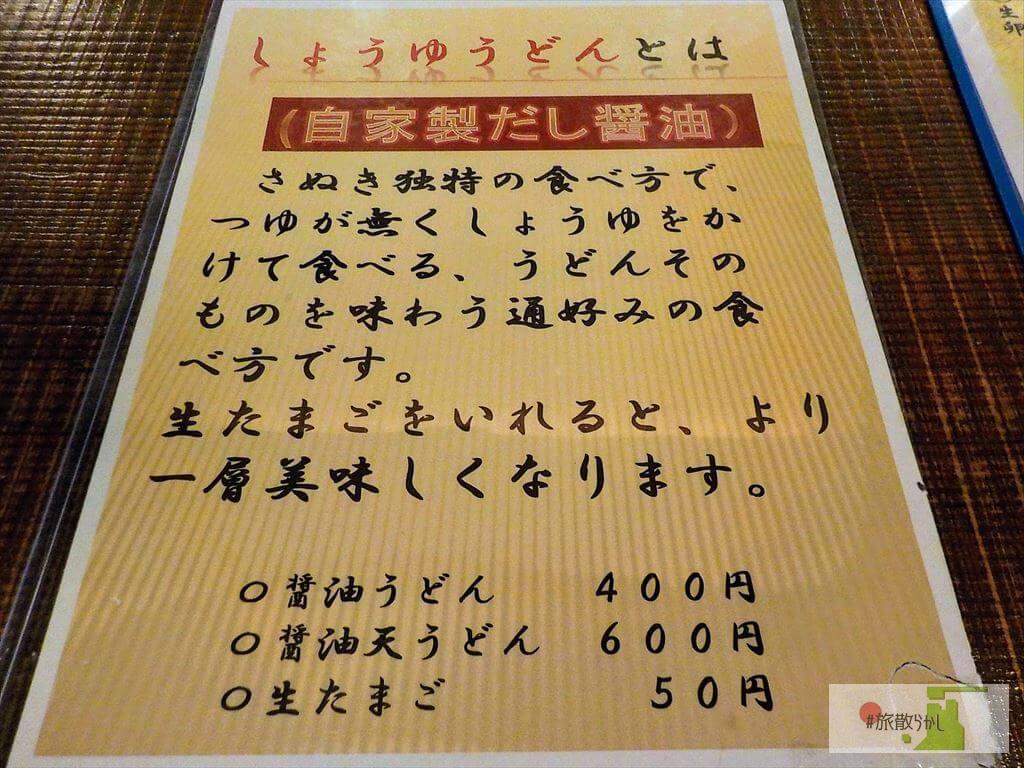 しょうゆうどんとは
(自家製だし醤油)
さぬき独特の食べ方で、
つゆが無くしょうゆをか
けて食べる、うどんその
ものを味わう通好みの食
べ方です。
生たまごをいれると、より
一層美味しくなります。
○醤油うどん 400円
○醤油天うどん 600円
○生たまご 50円
生卵
#旅散らかし